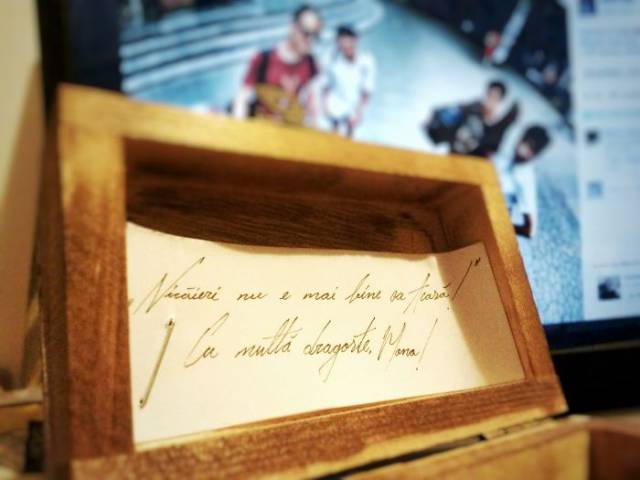 „Nicăieri nu e mai bine ca acasă!”
Cu multă dragoste, Mona!